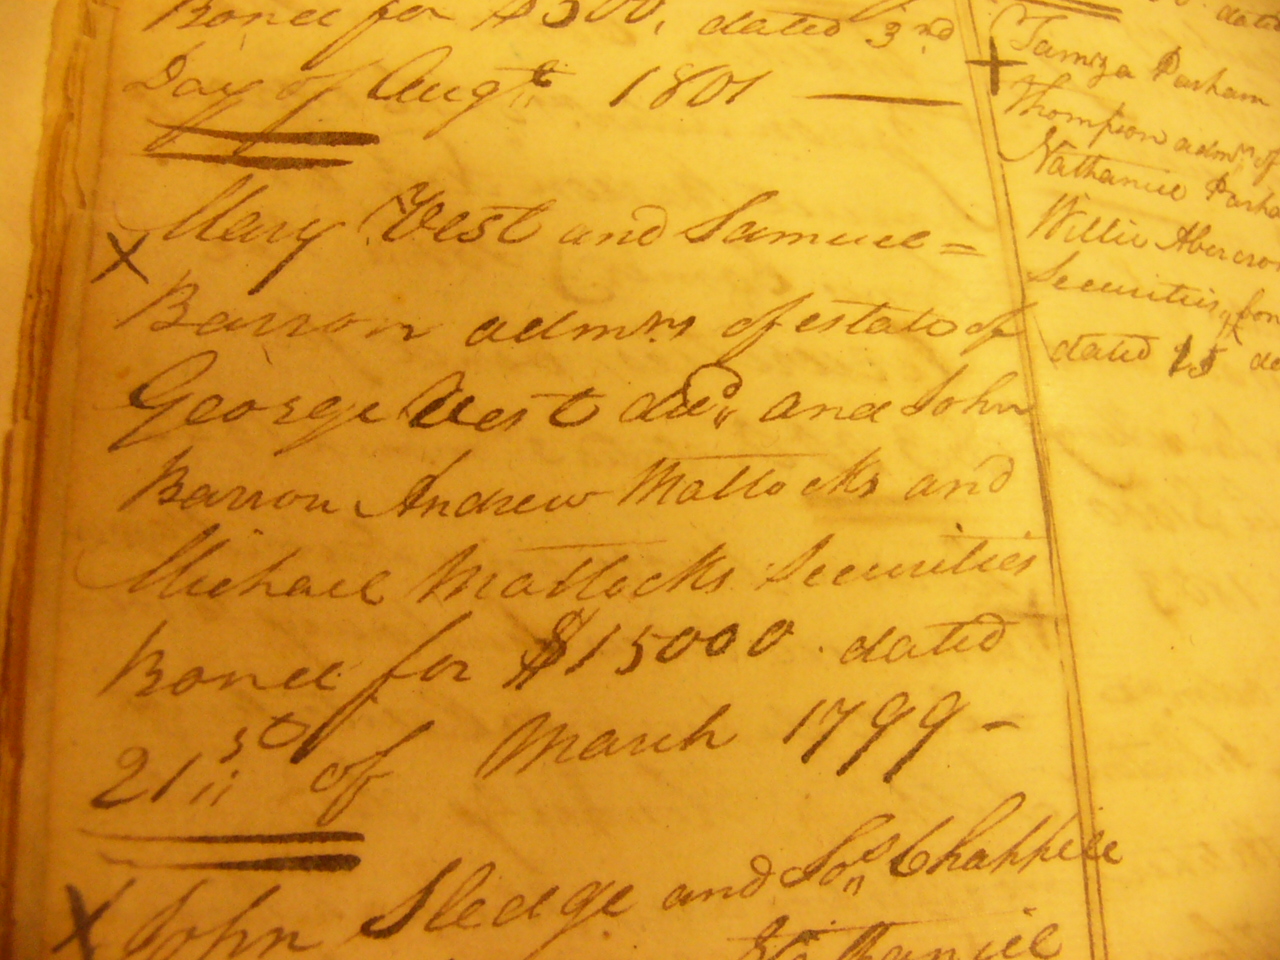 Bond for $500, dated 3rd
Day of Augt 1801
Mary West and Samuel =
Barron admrs of estate of
George West decd and John
Barron Andrew Mattocks and
Michael Mattocks Securities
Bond for $15000 dated
21st of March 1799 -
John Sledge and Jos Chappell
Nathaniel
dated
Tamza Parham
Thompson admrs of
Nathaniel Parha
Willie Abercro
Securities bon
dated 15 de